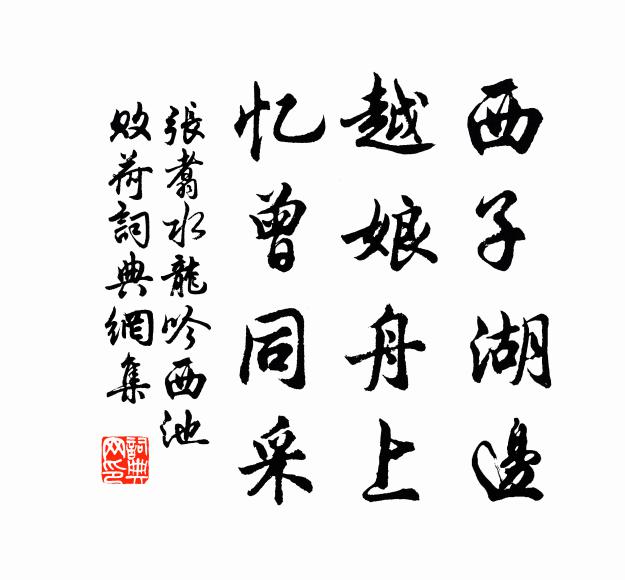 西子湖邊
越娘舟上
忆曾同采
張翥水龍吟西池
敗荷詞典網集
詞典網印